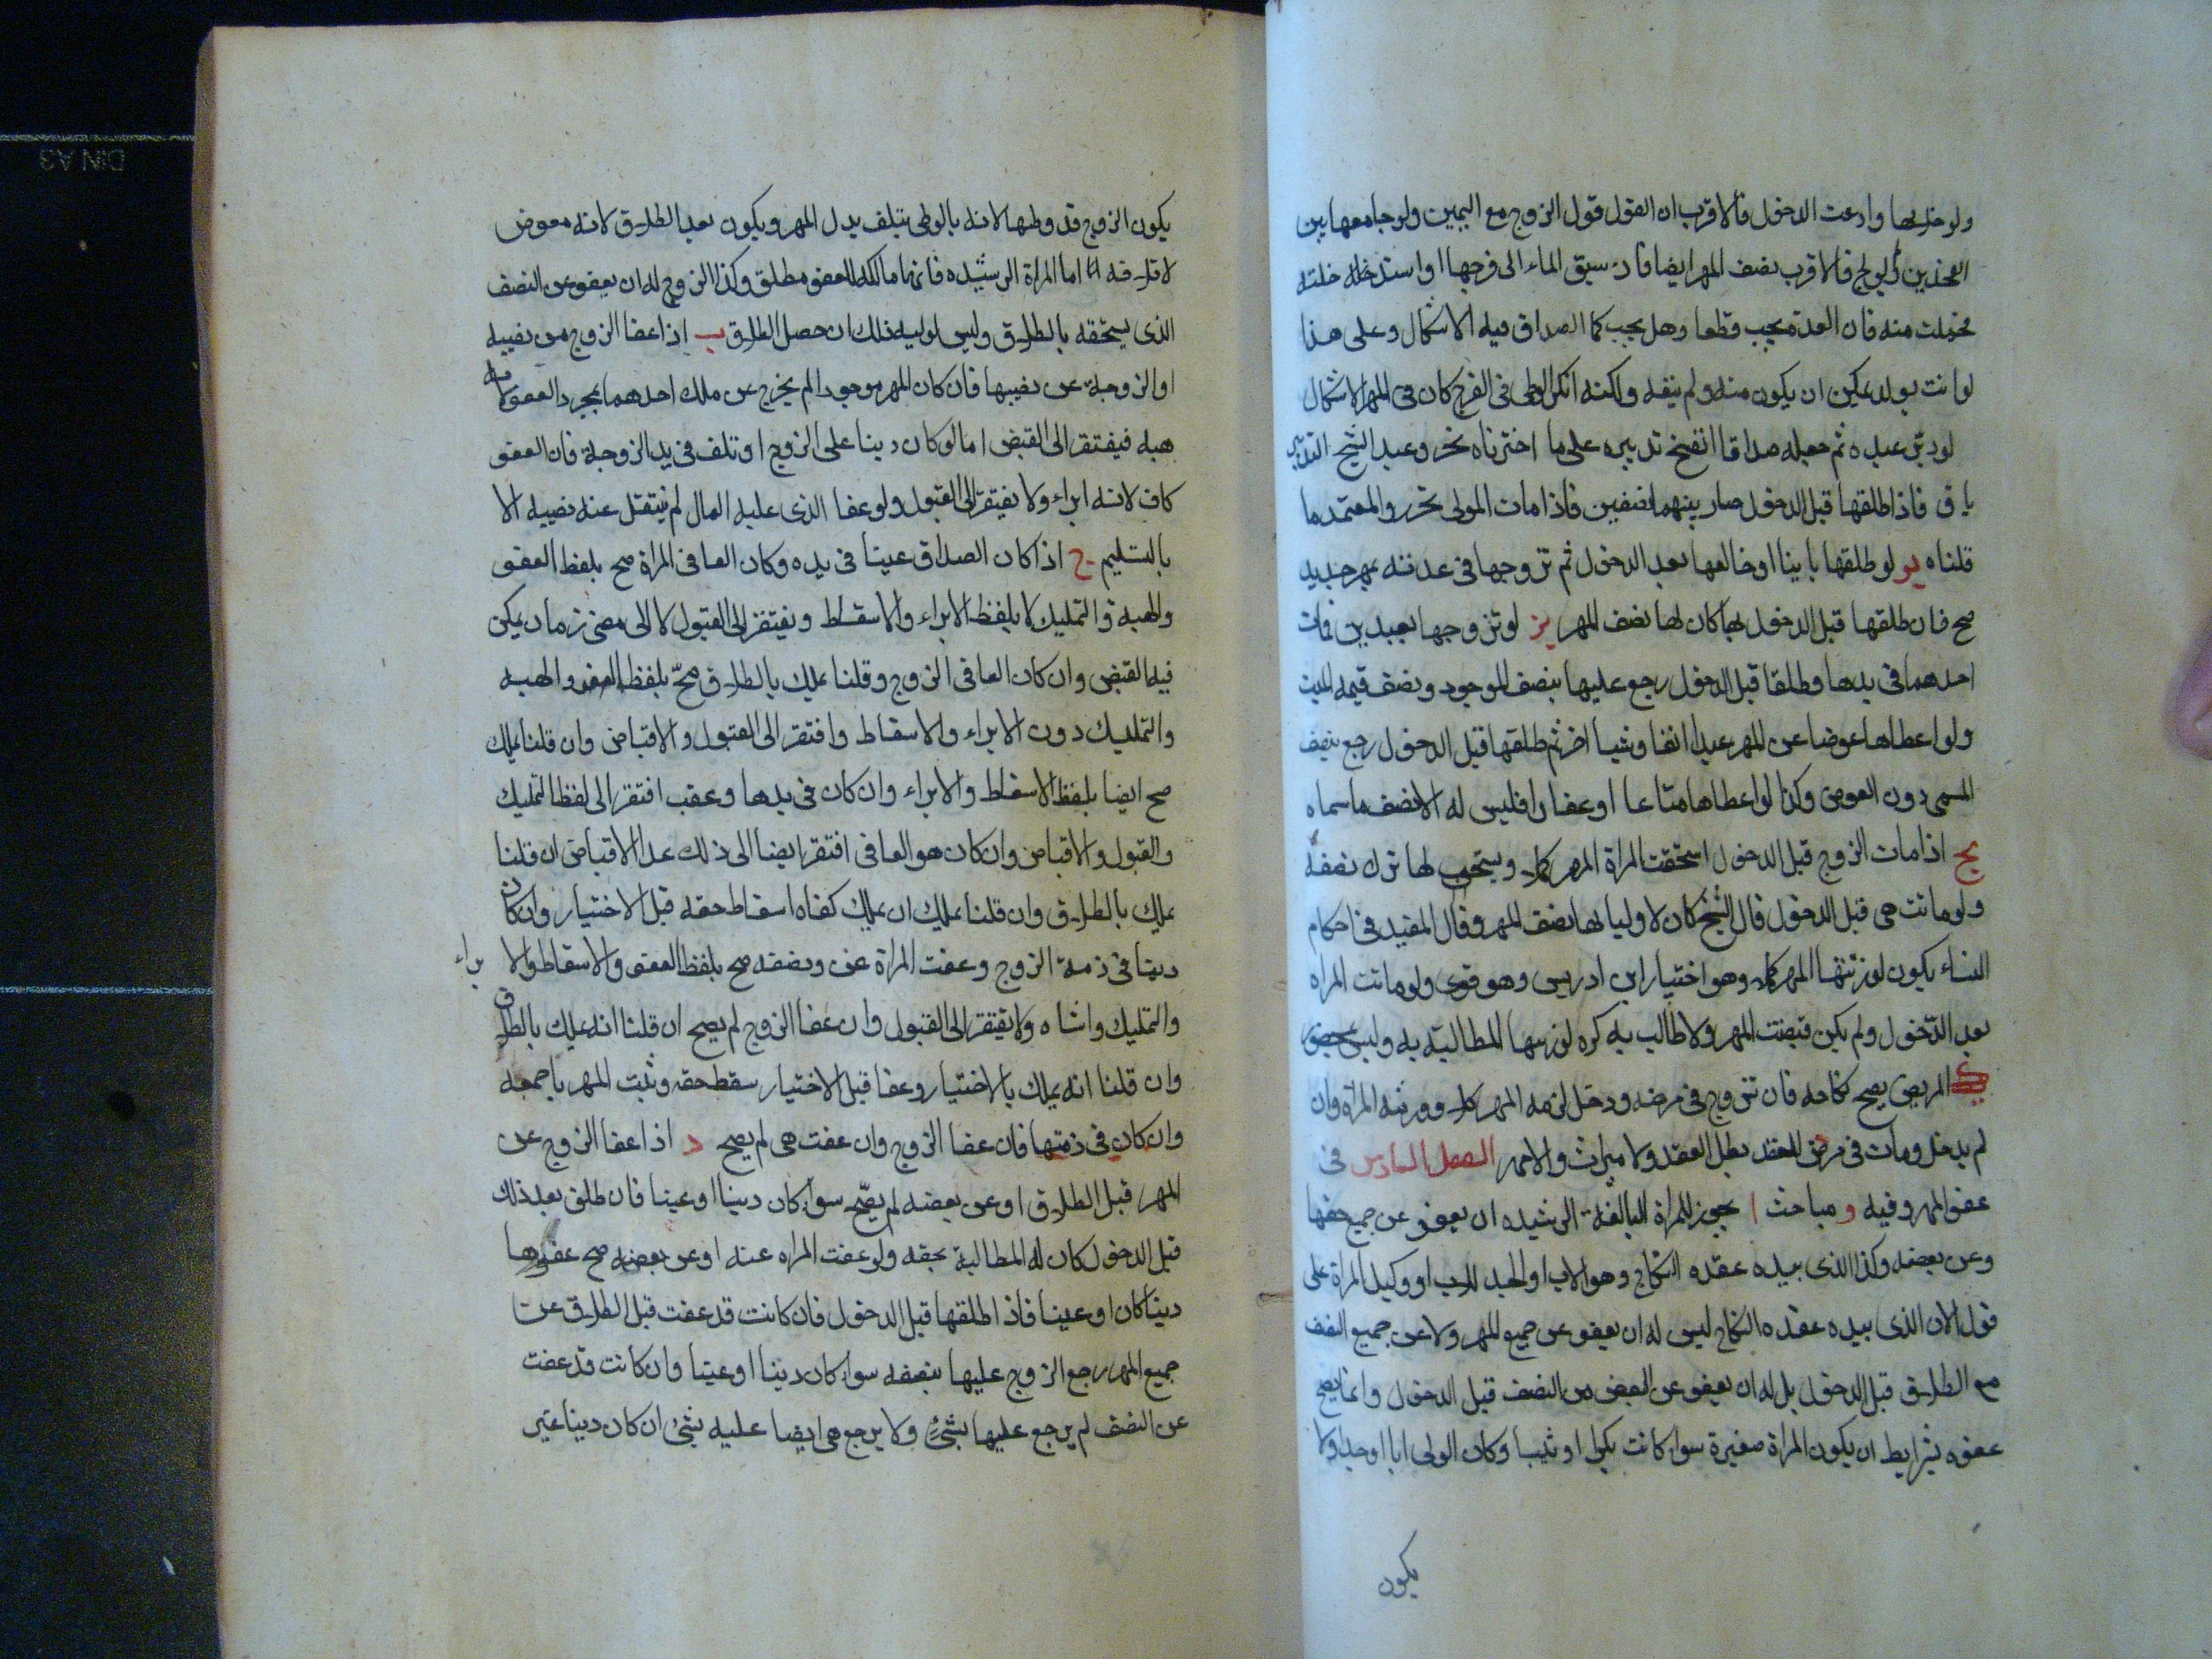 ولو خلا بها وادعت الدخول فالاقرب ان القول قول الزوج مع اليمين ولو جامعها بين
الفخذين ولم يولج فالاقرب نصف المهر ايضا فان سبق الماء الى فرجها او استدخلته
فحملت منه فان العدة يجب قطعا وهل يجب كمال الصداق فيه الاشكال وعلى هذا
لو اتت بولد يمكن ان يكون منه ولم ينفه ولكنه انكر الوطى فى الفرج كان فى المهر الاشكال
لو دبّر عبده ثم جعله صداقا انفسخ تدبيره على ما اخترناه نحن وعند الشيخ التدبير
باق فاذا طلقها قبل الدخول صار بينهما نصفين فاذا مات المولى تحرر والمعتمد ما
قلناه يو لو طلقها باينا او خالعها بعد الدخول ثم تزوجها فى عدته بمهر جديد
صح فان طلقها قبل الدخول بها كان لها نصف المهر يز لو تزوجها بعبدين فمات
احدهما فى يدها وطلقا قبل الدخول رجع عليها بنصف الموجود ونصف قيمة الميت
ولو اعطاها عوضا عن المهر عبدا ابقا وشيا اخر ثم طلقها قبل الدخول رجع بنصف
المسمى دون العوض وكذا لو اعطاها متاعا او عقارا فليس له الا نصف ما سماه
يح اذا مات الزوج قبل الدخول استحقت المراة المهر كملا ويستحب لها ترك نصفه
ولو ماتت هى قبل الدخول قال الشيخ كان لاوليا لها نصف المهر وقال المفيد فى احكام
النساء يكون لورثتها المهر كملا وهو اختيار ابن ادريس وهو قوى ولو ماتت المراه
بعد الدّخول ولم يكن قبضت المهر ولا طالب به كره لورثتها المطالبة به وليس بمحظور
المريض يصح نكاحه فان تزوج فى مرضه ودخل لزمه المهر كملا وورثته المراة وان
لم يدخل ومات فى مرض العقد بطل العقد ولا ميراث ولا مهر الفصل السادس فى
عفو المهر وفيه و مباحث ا يجوز للمراة البالغة الرشيده ان يعفو عن جميع حقها
وعن بعضه وكذا الذى بيده عقده النكاح وهو الاب او الجد للاب او وكيل المراة على
قول الان الذى بيده عقده النكاح ليس له ان يعفو عن جميع المهر ولا عن جميع النصف
مع الطلاق قبل الدخول بل له ان يعفو عن البعض من النصف قبل الدخول وانما يصح
عفوه بشرايط ان يكون المراة صغيرة سواء كانت بكرا او ثيبا وكان الولى ابا او جدا ولا
يكون
يكون الزوج قد وطئها لانه بالوطى يتلف بدل المهر ويكون بعد الطلاق لانه معوض
اما المراة الرشيده فانها مالكه للعفو مطلق وكذا الزوج له ان يعفو عن النصف
الذى يستحقه بالطلاق وليس لوليه ذلك ان حصل الطلاق ب اذا عفا الزوج من نصيبه
او الزوجة عن نصيبها فان كان المهر موجودا لم يخرج عن ملك احدهما بمجرد العفو لانه
هبه فيفتقر الى القبض اما لو كان دينا على الزوج او تلف فى يد الزوجة فان العفو
كاف لانه ابراء ولا يفتقر الى القبول ولو عفا الذى عليه المال لم ينتقل عنه نصيبه الا
بالتسليم ج اذا كان الصداق عينا فى يده وكان العافى المراة صح بلفظ العفو
والهبة والتمليك لا بلفظ الابراء والاسقاط ويفتقر الى القبول لا الى مضى زمان يمكن
فيه القبض وان كان العافى الزوج وقلنا يملك بالطلاق صحّ بلفظ العفو والهبه
والتمليك دون الابراء والاسقاط وافتقر الى القبول والاقباض وان قلنا يملك
صح ايضا بلفظ الاسقاط والابراء وان كان فى يدها وعفت افتقر الى لفظ التمليك
والقبول والاقباض وان كان هو العافى افتقر ايضا الى ذلك عدا الاقباض ان قلنا
يملك بالطلاق وان قلنا يملك ان يملك كفاه اسقاط حقه قبل الاختيار وان كان
دينا فى ذمة الزوج وعفت المراة عن ونصفه صح بلفظ العفو والاسقاط والا براء
والتمليك واشباه ولا يفتقر الى القبول وان عفا الزوج لم يصح ان قلنا انه يملك بالطلاق
وان قلنا انه يملك بالاختيار وعفا قبل الاختيار سقط حقه وثبت المهر باجمعه
وان كان فى ذمتها فان عفا الزوج وان عفت هى لم يصح د اذا عفا الزوج عن
المهر قبل الطلاق او عن بعضه لم يصّح سواء كان دينا او عينا فان طلق بعد ذلك
قبل الدخول كان له المطالبة بحقه ولو عفت المراه عنه او عن بعضه صح عفوها
دينا كان او عينا فاذا طلقها قبل الدخول فان كانت قد عفت قبل الطلاق عن
جميع المهر رجع الزوج عليها بنصفه سواء كان دينا او عينا وان كانت قد عفت
عن النصف لم يرجع عليها بشئ ولا يرجع هى ايضا عليه بشئ ان كان دينا غير
DIN A3